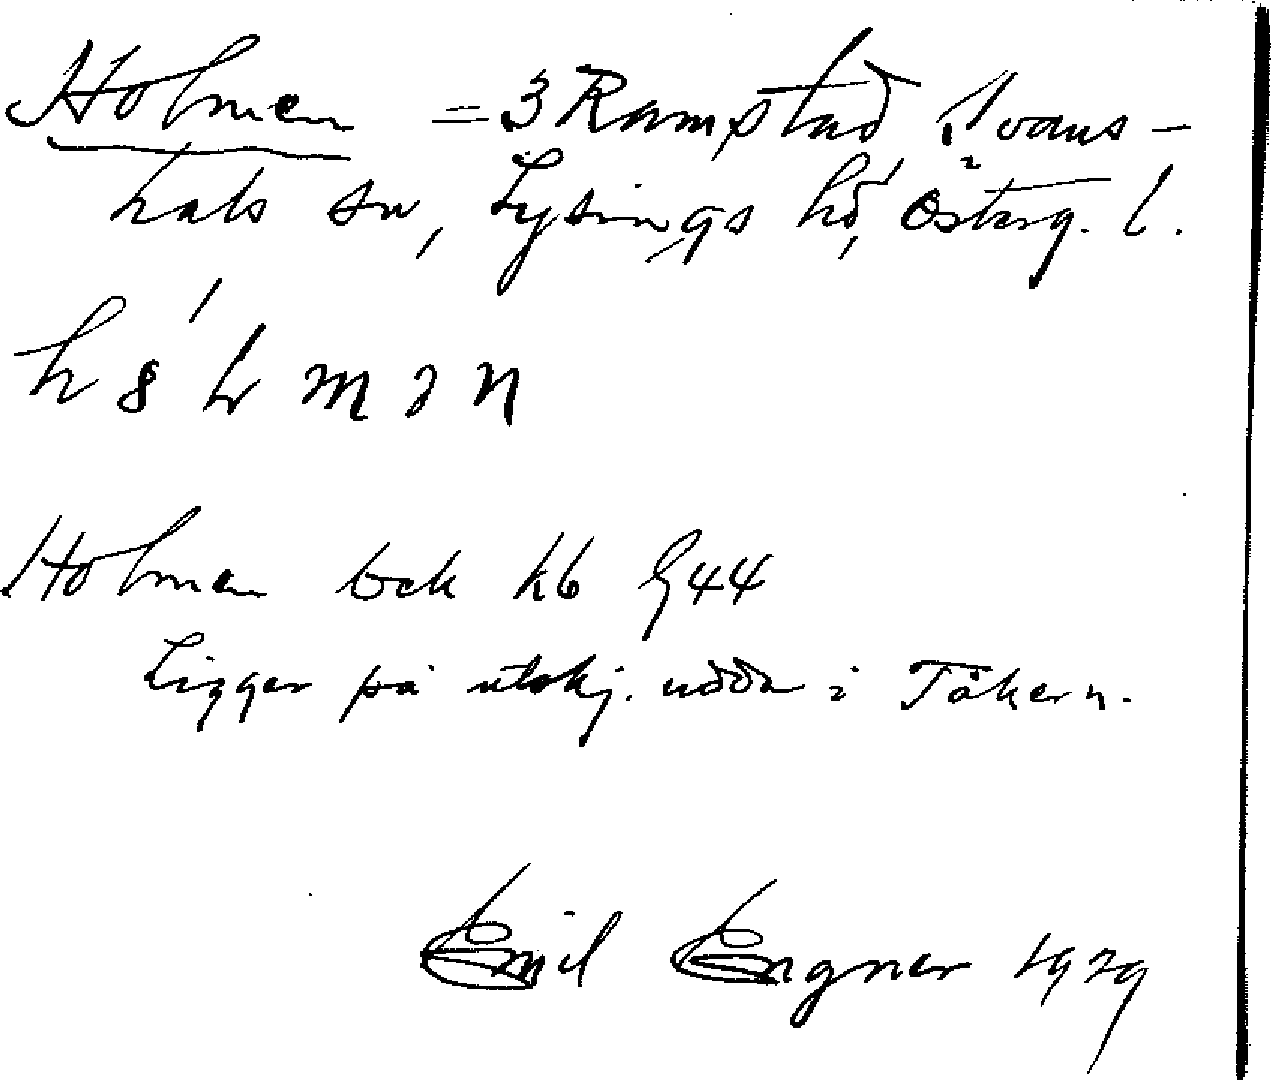 Holmen = 3 Ramstad Svans-
hals sn, Lysings hd, Österg. l.
Holmen bek kb G44
Ligger på utskj. udde i Tåkern.
Emil Engner 1929